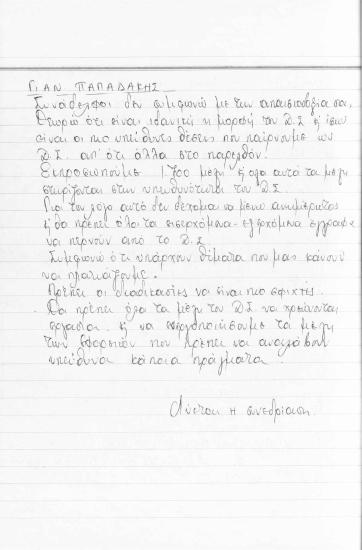 ΓΙΑΝ ΠΑΠΑΔΑΚΗΣ
Συνάδελφοι δεν συμφωνώ με την απαισιοδοξία σας.
Θεωρώ ότι είναι ιδανική η μορφή του Δ.Σ κ ίσως
είναι οι πιο υπεύθυνες θέσεις που παίρνουμε ως
Δ.Σ. απ' ότι άλλα στο παρελθόν.
Εκπροσωπούμε 1.700 μέλη κ όλα αυτά τα μέλη
στηρίζονται στην υπευθυνότητα του Δ.Σ.
Για τον λόγο αυτό δεν δέχομαι να μένω ανημέρωτος
κ θα πρέπει όλα τα εισερχόμενα - εξερχόμενα έγγραφα
να περνούν από το Δ.Σ
Συμφωνώ ότι υπάρχουν θέματα που μας κάνουν
να πλατιάζουμε.
Πρέπει οι διαδικασίες να είναι πιο σφικτές.
Θα πρέπει όλα τα μέλη του Δ.Σ να χρεώνονται
εργασία κ να ενεργοποιήσουμε τα μέλη
των εφορειών που πρέπει να αναλάβουν
υπεύθυνα κάποια πράγματα.
Λύεται η συνεδρίαση.